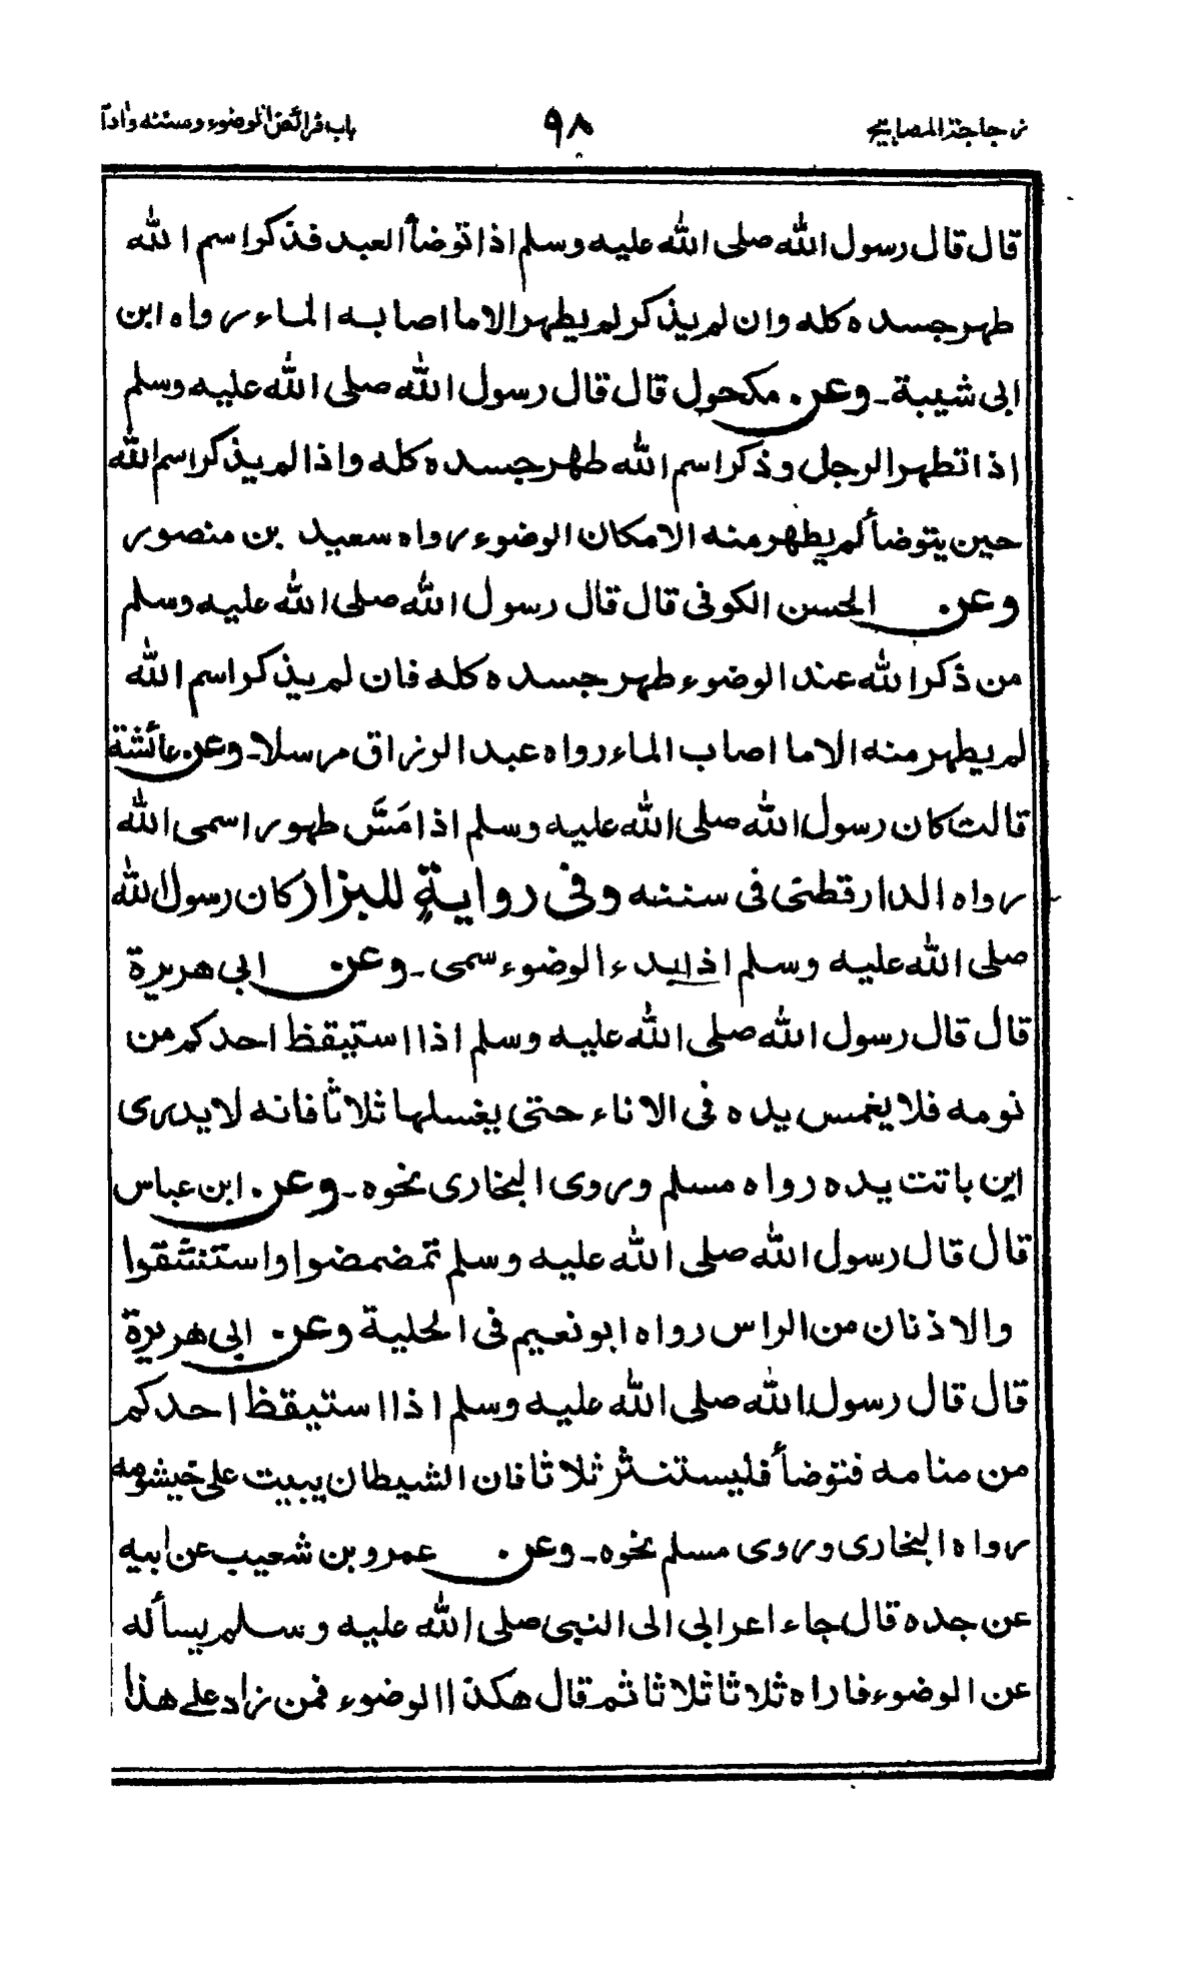 زجاجة المصابيح ٩٨ باب فرائض الوضوء وسننه وادآ
قال قال رسول الله صلى الله عليه وسلم اذا توضأ العبد فذكر اسم الله
طهر جسده كله وان لم يذكر لم يطهر الا ما اصابه الماء رواه ابن
ابى شيبة۔ وعن مكحول قال قال رسول الله صلى الله عليه وسلم
اذا تطهر الرجل وذكر اسم الله طهر جسده كله واذا لم يذكر اسم الله
حين يتوضأ لم يطهر منه الا مكان الوضوء رواه سعيد بن منصور
وعن الحسن الكوفى قال قال رسول الله صلى الله عليه وسلم
من ذكر الله عند الوضوء طهر جسده كله فان لم يذكر اسم الله
لم يطهر منه الا ما اصاب الماء رواه عبد الرزاق مرسلا۔ وعن عائشة
قالت كان رسول الله صلى الله عليه وسلم اذا مَسَّ طهور اسمى الله
رواه الدارقطنى فى سننه وفى روايةٍ للبزار كان رسول الله
صلى الله عليه وسلم اذا بدء الوضوء سمى۔ وعن ابى هريرة
قال قال رسول الله صلى الله عليه وسلم اذا استيقظ احدكم من
نومه فلا يغمس يده فى الاناء حتى يغسلها ثلاثا فانه لا يدرى
اين باتت يده رواه مسلم وروى البخارى نحوه۔ وعن ابن عباس
قال قال رسول الله صلى الله عليه وسلم تمضمضوا واستنشقوا
والاذنان من الراس رواه ابو نعيم فى الحلية وعن ابى هريرة
قال قال رسول الله صلى الله عليه وسلم اذا استيقظ احدكم
من منامه فتوضأ فليستنثر ثلاثا فان الشيطان يبيت على خيشومه
رواه البخارى وروى مسلم نحوه۔ وعن عمرو بن شعيب عن ابيه
عن جده قال جاء اعرابى الى النبى صلى الله عليه وسلم يسأله
عن الوضوء فاراه ثلاثا ثلاثا ثم قال هكذا الوضوء فمن زاد على هذا